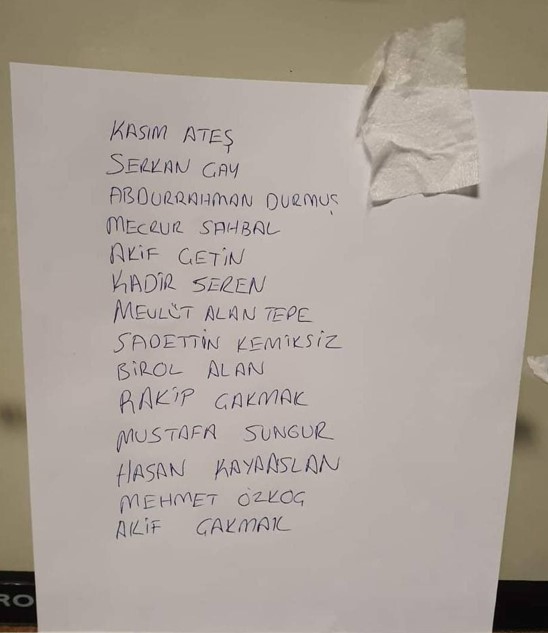 KASIM ATEŞ
SERKAN GAY
ABDURRAHMAN DURMUŞ
MECRUR SAHBAL
AKİF GETİN
KADİR SEREN
MEVLÜT ALAN TEPE
SADETTİN KEMİKSİZ
BİROL ALAN
RAKİP GAKMAK
MUSTAFA SUNGUR
HASAN KAYAASLAN
MEHMET ÖZKOG
AKİF GAKMAK
RO